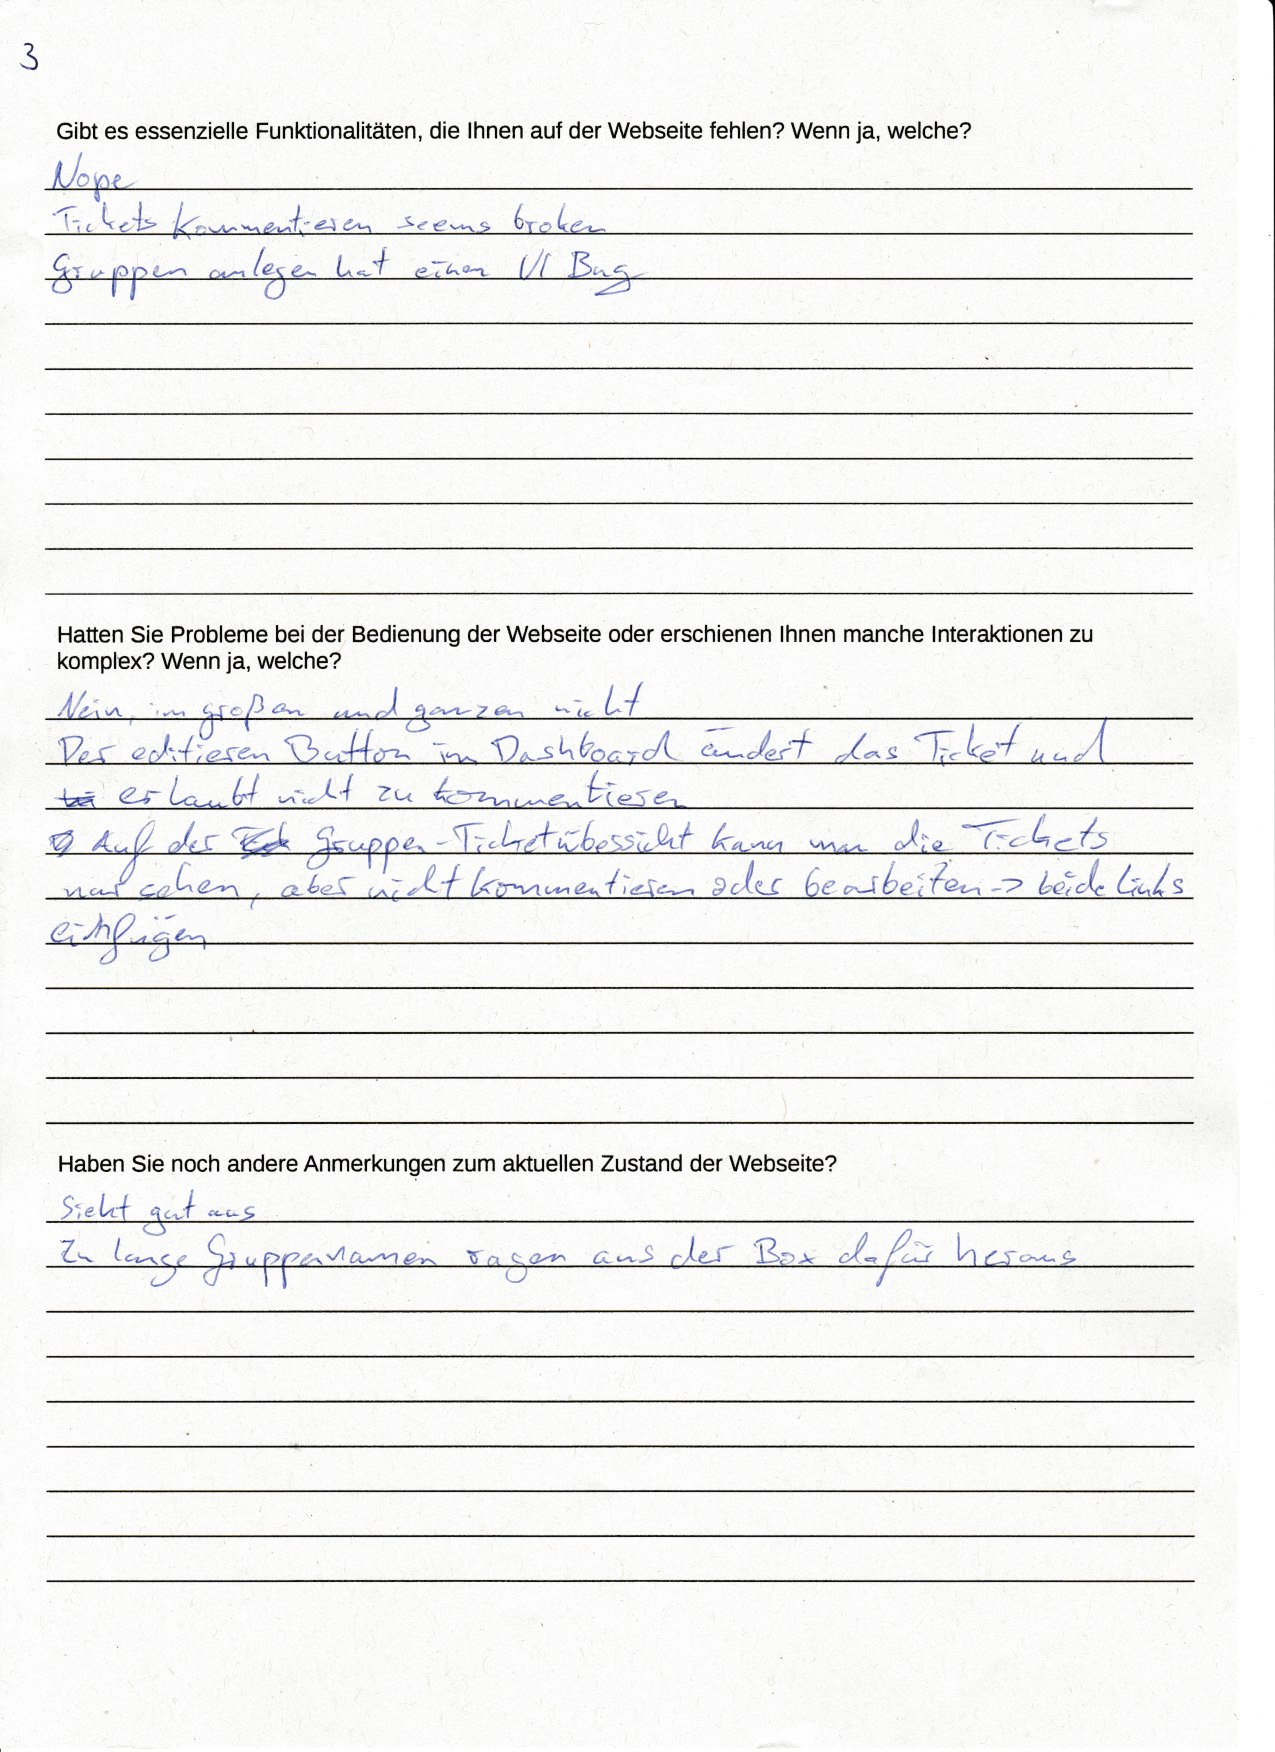 3
Gibt es essenzielle Funktionalitäten, die Ihnen auf der Webseite fehlen? Wenn ja, welche?
Nope
Tickets kommentieren seems broken
Gruppen anlegen hat einen UI Bug
Hatten Sie Probleme bei der Bedienung der Webseite oder erschienen Ihnen manche Interaktionen zu
komplex? Wenn ja, welche?
Nein, im großen und ganzen nicht
Der editieren Button im Dashboard ändert das Ticket und
erlaubt nicht zu kommentieren
Auf der Gruppen-Ticketübersicht kann man die Tickets
nur sehen, aber nicht kommentieren oder bearbeiten -> beide Links
einfügen
Haben Sie noch andere Anmerkungen zum aktuellen Zustand der Webseite?
Sieht gut aus
Zu lange Gruppennamen ragen aus der Box dafür heraus